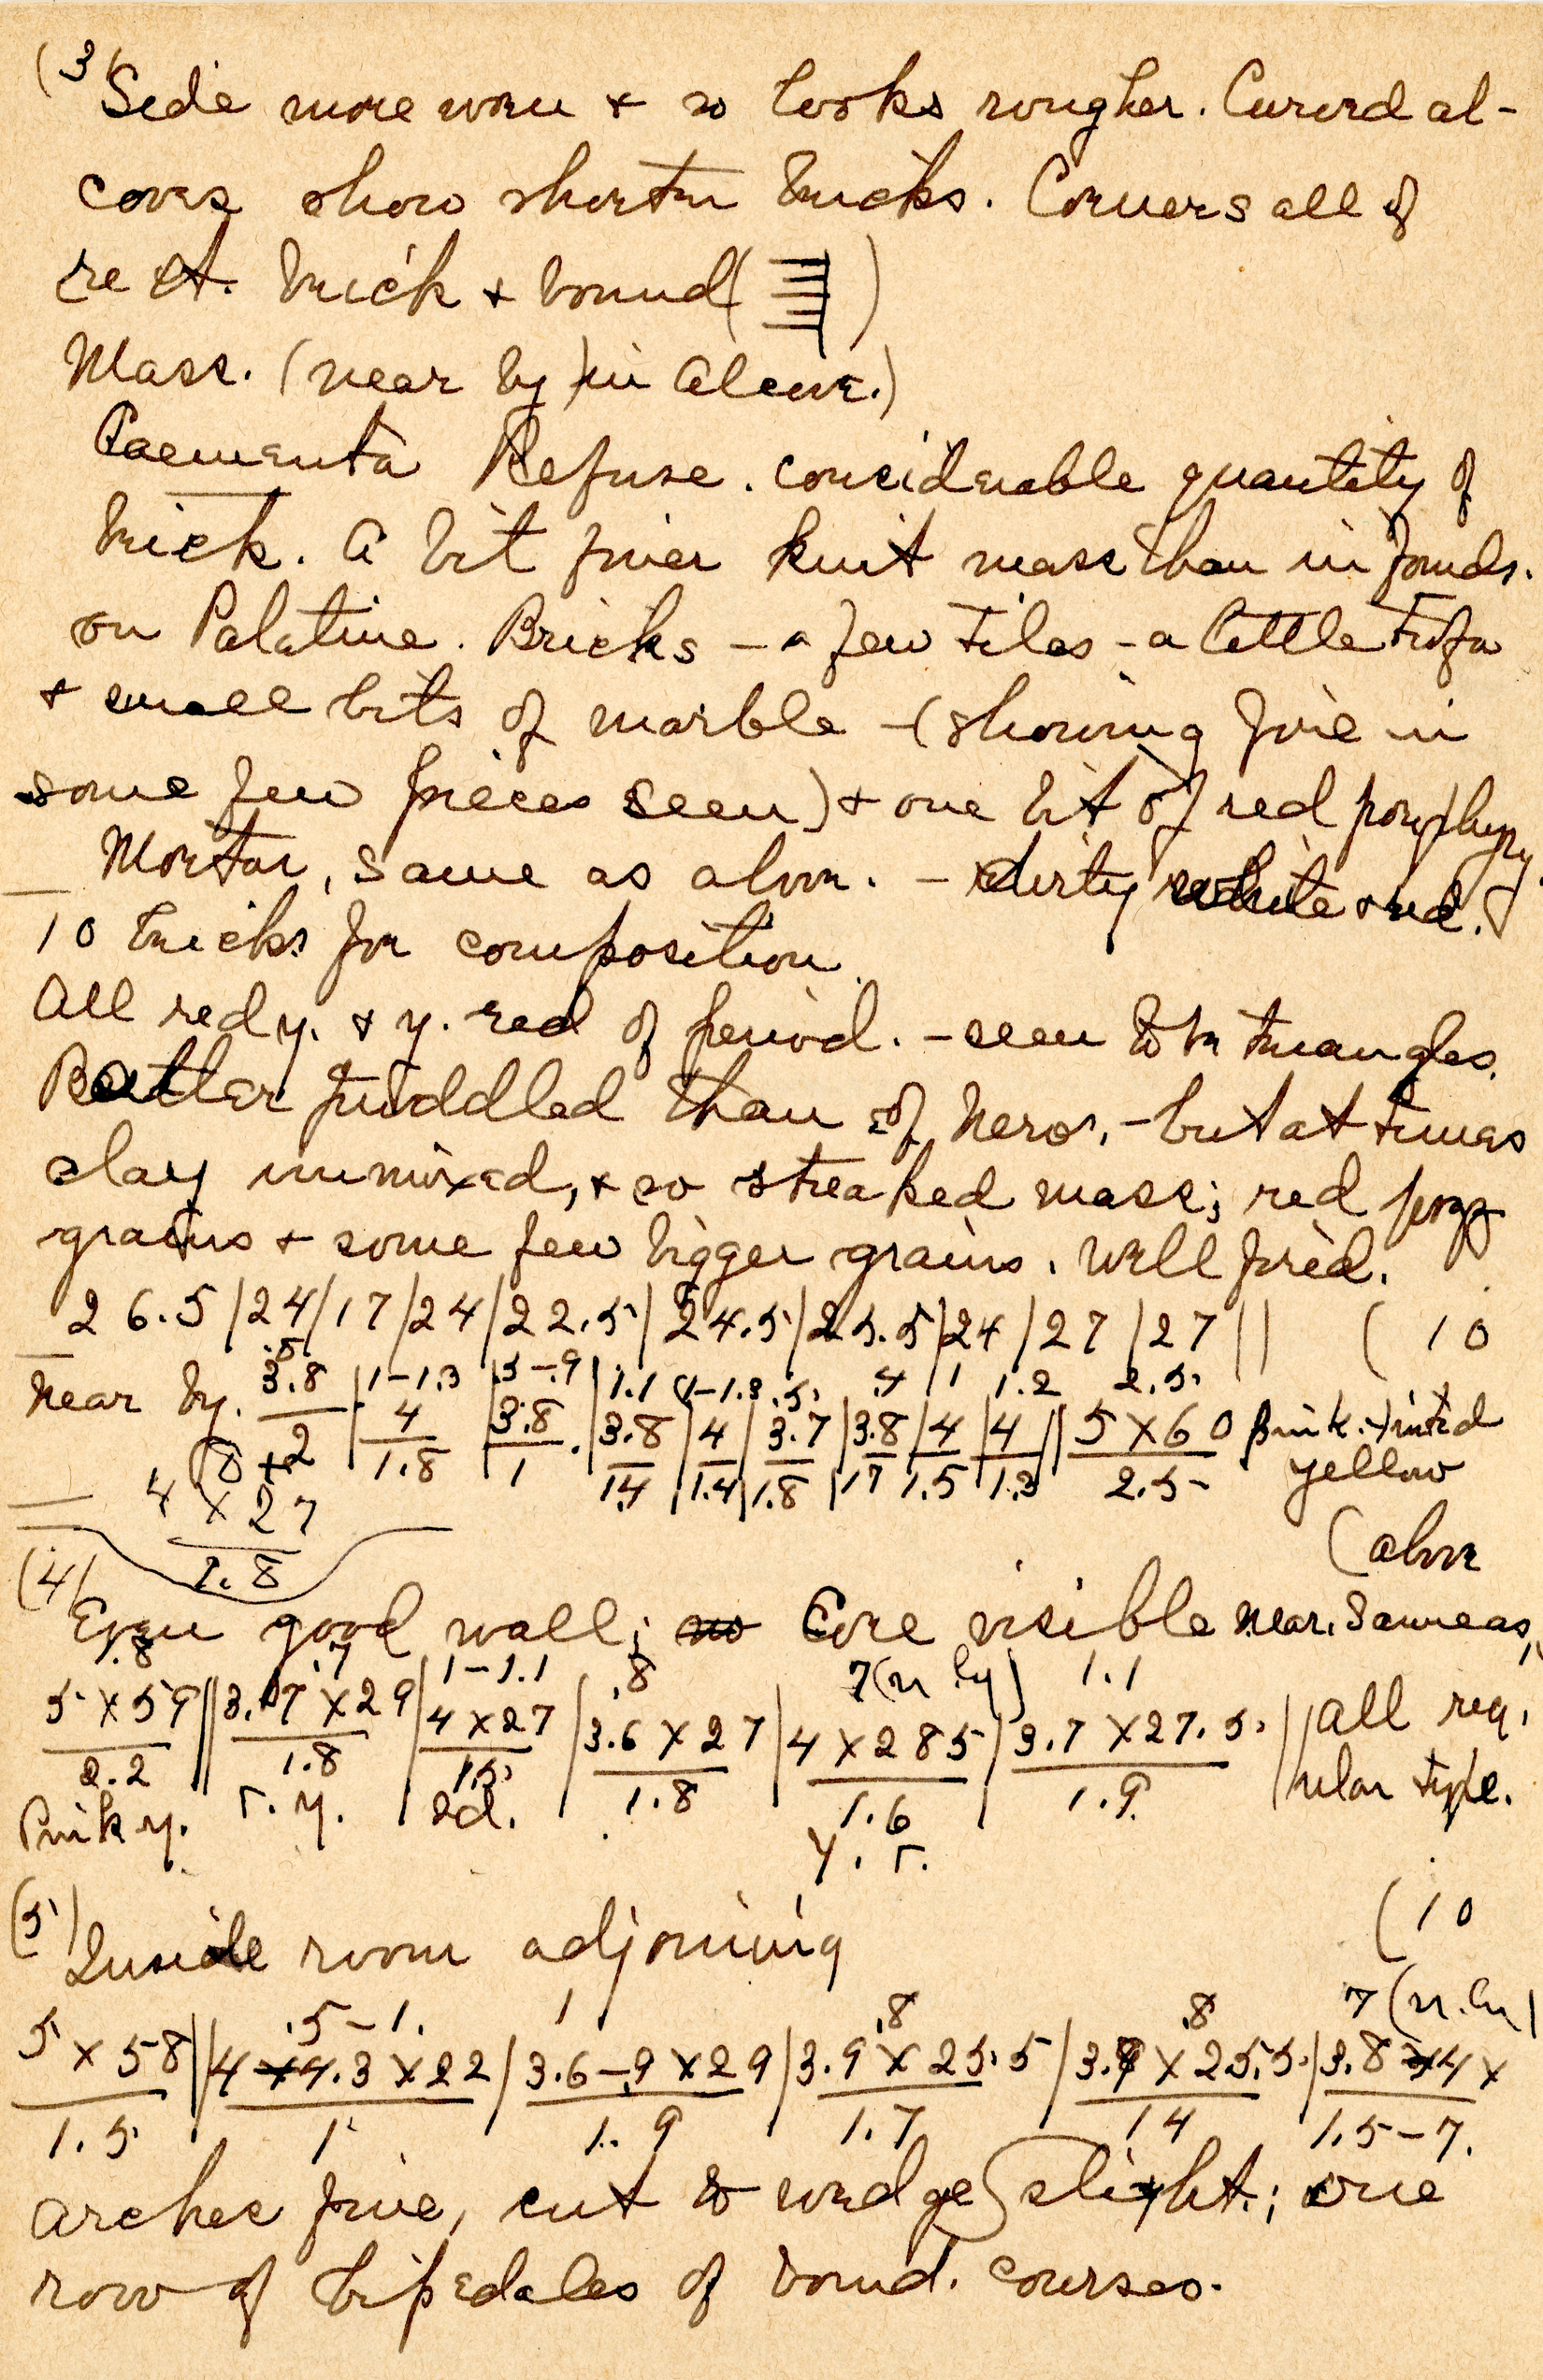 (3) Side more worn + so looks rougher. Curved al-
coves show shorter bricks. Corners all of
rect. brick + bound ( )
Mass. (near by) in alcove.)
Caementa Refuse. considerable quantity of
brick. A bit finer knit mass than in founds.
on Palatine. Bricks - a few tiles - a little tufa
+ small bits of marble - (showing fire in
some few pieces seen) + one bit of red porphyry.
Mortar, same as above. - dirty white + red.
10 bricks for composition.
All red y. + y. red of period. - seem to be triangles.
Better puddled than of Neros, - but at times
clay unmixed, + so streaked mass; red pozz
grains + some few bigger grains. Well fired.
26.5 / 24 / 17 / 24 / 22.5 / 24.5 / 25.5 / 24 / 27 / 27 // (10
.5 | 1-1.3 | .5-.9 | 1.1 (1-1.3 .5 .4 | 1 1.2 2.5
Near by. 3.8 | 4 | 3.8 | 3.8 | 4 | 3.7 | 3.8 | 4 | 4 || 5 X 60 Pink-tinted
2 | 1.8 | 1 | 1.4 | 1.4 | 1.8 | 1.7 | 1.5 | 1.3 2.5 yellow
4 X 27
1.8
(above
(4) Even good wall; no Core visible near. Same as
1.8 .7 1-1.1 .8 7 (n. by) 1.1
5 X 59 || 3.7 X 29 | 4 X 27 | 3.6 X 27 | 4 X 285 | 3.7 X 27.5 || All reg-
2.2 || 1.8 | 1.5 | 1.8 | 1.6 | 1.9 ular type.
Pink y. r. y. rd. y. r.
(10
(5) Inside room adjoining
.5-1. 1 .8 .8 7 (n. by)
5 X 58 || 4 X 4.3 X 22 / 3.6-.9 X 29 / 3.9 X 25.5 / 3.9 X 25.5 / 3.8 X 4 X
1.5 1 1.9 1.7 1.4 1.5-7.
Arches fine, cut to wedge slight; one
row of bipedales of bond. courses.